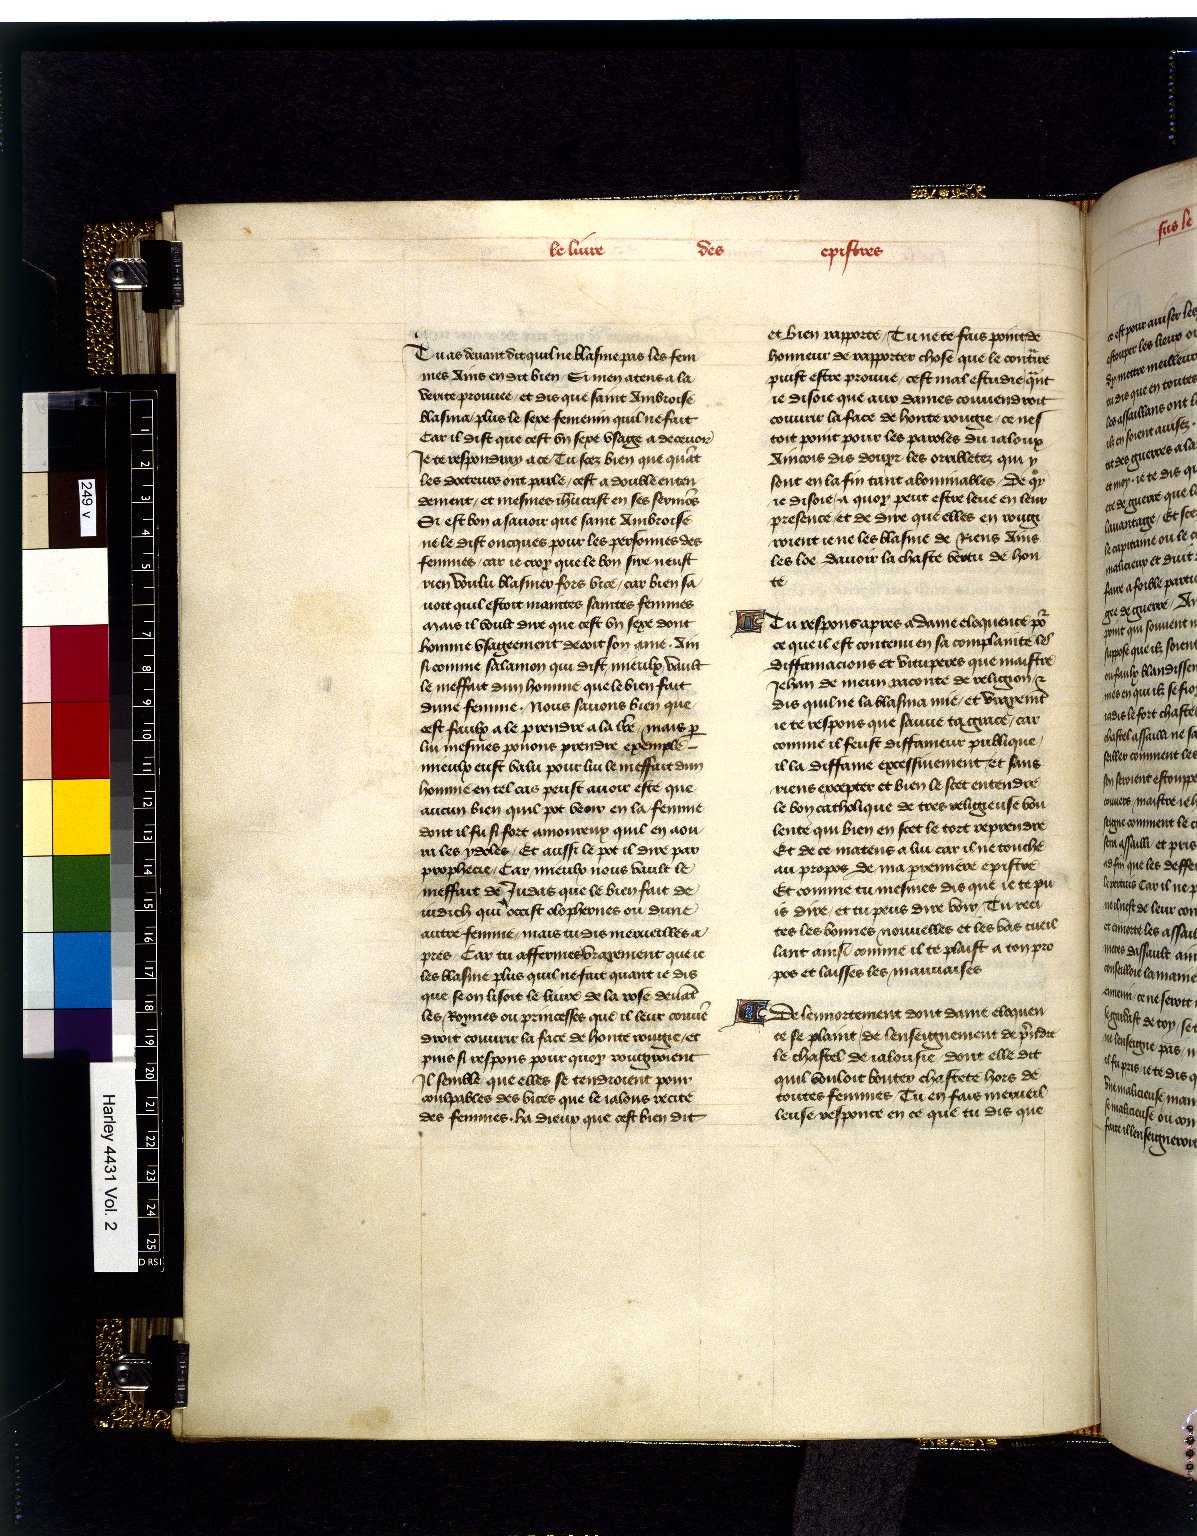 le liure des epistres
Tu as deuant dit quil ne blasme pas les fem
mes Ains en dit bien / Si men atens a la
verite prouuee / et dis que saint Ambroise
blasma plus le sexe femenin quil ne fait
Car il dist que cest vn sexe vsage a deceuoir
Je te respondray a ce / Tu scez bien que quāt
les docteurs ont parle / cest a double enten
dement / et mesmes ihūcrist en ses sermōs
Si est bon a sauoir que saint Ambroise
ne le dist oncques pour les personnes des
femmes / car ie croy que le bon sire neust
rien voulu blasmer fors vice / car bien sa
uoit quil estoit maintes saintes femmes
Mais il voult dire que cest vn sexe dont
homme vsageement decoit son ame . Ain
si comme Salamon qui dist mieulx vault
le meffait dun homme que le bien fait
dune femme . Nous sauons bien que
cest faulx a le prendre a la lr̄e / mais p
lui mesmes pouons prendre exemple
mieulx eust valu pour lui le meffait dun
homme en tel cas peust auoir este que
aucun bien quil pot veoir en la femme
dont il fu si fort amoureux quil en aou
ra les ydoles / Et aussi le pot il dire par
prophecie / Car mieulx nous vault le
meffait de Judas que le bien fait de
iudich qui occist olophernes ou dune
autre femme / mais tu dis merueilles a
pres / Car tu affermes vrayement que ie
les blasme plus quil ne fait quant ie dis
que se on lisoit le liure de la rose deuāt
les Roynes ou princesses que il leur conuē
droit couurir la face de honte rougie / et
puis si respons pour quoy rougiroient
Il semble que elles se tendroient pour
coulpables des vices que le ialous recite
des femmes . ha dieux que cest bien dit
et bien rapporte / Tu ne te fais point de
honneur de rapporter chose que le contr̄re
puist estre prouue / cest mal estudie / qūt
ie disoie que aux dames conuendroit
couurir la face de honte rougie / ce nes
toit point pour les paroles du ialoux
Aincois dis douyr les orribletez qui y
sont en la fin tant abominables / De qͦy
ie disoie a quoy peut estre leue en leur
presence / et de dire que elles en rougi
roient ie ne les blasme de Riens Ains
les loe dauoir la chaste vertu de hon
te
Tu respons apres a dame eloquence po͛
ce que il est contenu en sa complainte les
diffamacions et vituperes que maistre
Jehan de meun raconte de religion / ⁊
dis quil ne la blasma mie / et vrayemt̄
ie te respons que sauue ta grace / car
comme il feust diffameur publique /
il la diffame excessiuement et sans
riens excepter et bien le scet entendre
le bon catholique de tres religieuse vou
lente qui bien en scet le tort reprendre
Et de ce matens a lui car il ne touche
au propos de ma premiere epistre
Et comme tu mesmes dis que ie te pu
is dire / et tu peus dire voir / Tu reci
tes les bonnes nouuelles et les vas cueil
lant ainsi comme il te plaist a ton pro
pos et laisses les mauuaises
De lennortement dont dame eloquen
ce se plaint de lenseignement de p̄ndre
le chastel de ialousie / dont elle dit
quil vouloit bouter chastete hors de
toutes femmes Tu en fais merueil
leuse responce en ce que tu dis que
sus le
249 v
Harley 4431 Vol. 2